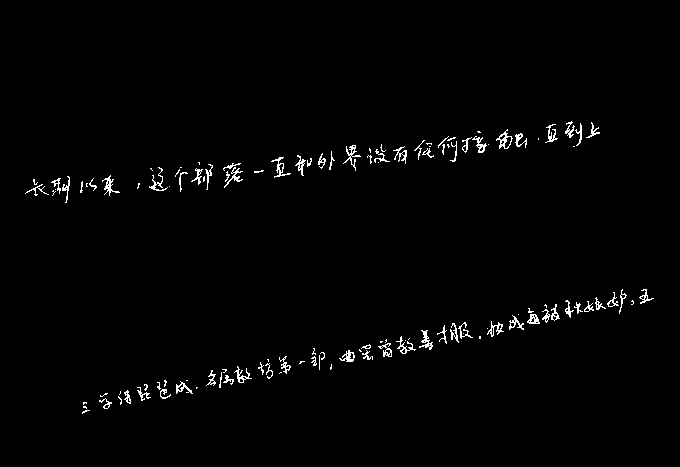 长期以来，这个部落一直和外界没有任何接触，直到上
三学得琵琶成，名属教坊第一部，曲罢曾教善才服，妆成每被秋娘妒，五